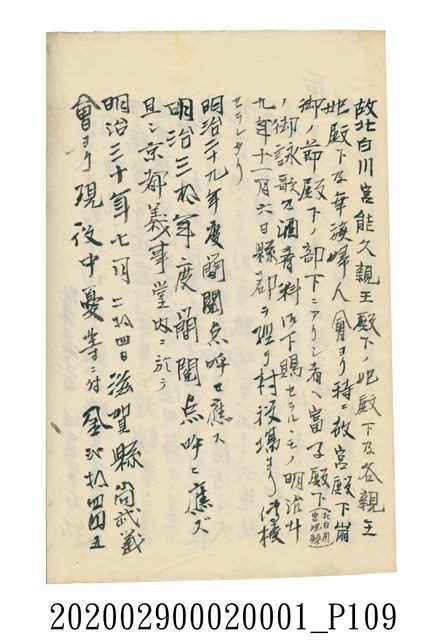 故北白川宮能久親王殿下ノ妃殿下及各親王
妃殿下及華族婦人會ヨリ特ニ故宮殿下崩
御ノ節殿下ノ部下ニアリシ者ヘ富子殿下(北白川宮妃殿)
ノ御詠歌及酒肴料御下賜セラルモノ明治廿
九年十一月六日縣郡ヲ經テ村役場ヨリ傳校
セラレタリ
明治二十九年度簡閲点呼ニ應ズ
明治三拾年度簡閲点呼ニ應ズ
且シ京都義事堂内ニ於テ
明治三十年七月二拾四日滋賀縣尚武義
會ヨリ現役中憂等ニ付金弐拾四圓五
202002900020001_P109